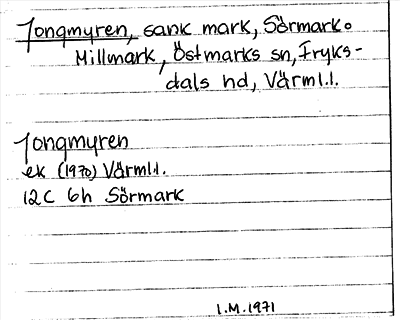 Jongmyren, sank mark, Sörmark o
Millmark, Östmarks sn, Fryks-
dals hd, Värml.l.
Jongmyren
ek (1970) Värml.l.
12C 6h Sörmark
I.M. 1971